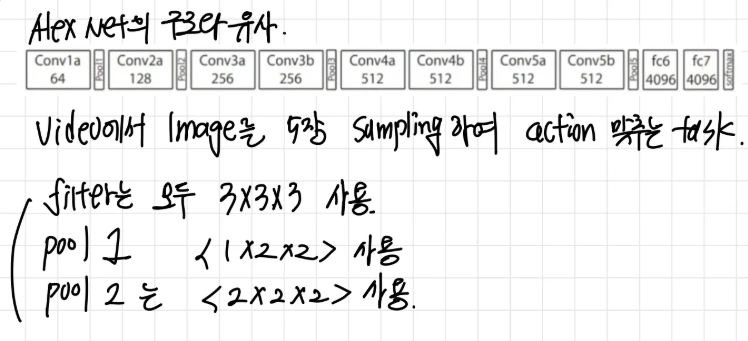 Alex Net의 구조와 유사.
Conv1a 64 Pool1 Conv2a 128 Pool2 Conv3a 256 Conv3b 256 Pool3 Conv4a 512 Conv4b 512 Pool4 Conv5a 512 Conv5b 512 Pool5 fc6 4096 fc7 4096 softmax
Video에서 Image를 5장 Sampling 하여 action 맞추는 task.
filter는 모두 3x3x3 사용.
pool 1 <1x2x2> 사용
pool 2 는 <2x2x2> 사용.